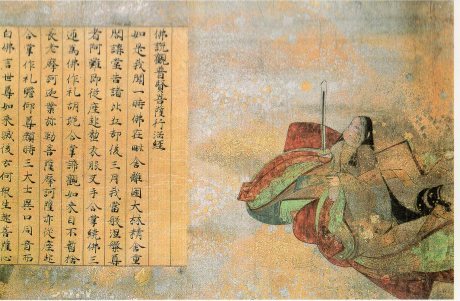 佛説觀普賢菩薩行法經
如是我聞一時佛在毗舍離國大林精舍重
閣講堂告諸比丘却後三月我當般涅槃尊
者阿難即從座起整衣服叉手合掌繞佛三
迊為佛作礼胡跪合掌諦觀如來目不暫捨
長老摩訶迦葉弥勒菩薩摩訶薩亦從座起
合掌作礼瞻仰尊顔時三大士異口同音而
白佛言世尊如來滅後云何衆生起菩薩心